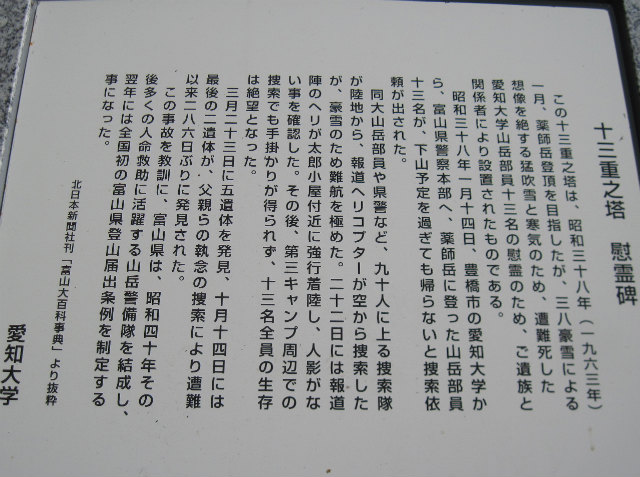 十三重之塔　慰霊碑
この十三重之塔は、昭和三十八年（一九六三年）
一月、薬師岳登頂を目指したが、三八豪雪による
想像を絶する猛吹雪と寒気のため、遭難死した
愛知大学山岳部員十三名の慰霊のため、ご遺族と
関係者により設置されたものである。
昭和三十八年一月十四日、豊橋市の愛知大学か
ら、富山県警察本部へ、薬師岳に登った山岳部員
十三名が、下山予定を過ぎても帰らないと捜索依
頼が出された。
同大山岳部員や県警など、九十人に上る捜索隊
が陸地から、報道ヘリコプターが空から捜索した
が、豪雪のため難航を極めた。二十二日には報道
陣のヘリが太郎小屋付近に強行着陸し、人影がな
い事を確認した。その後、第三キャンプ周辺での
捜索でも手掛かりが得られず、十三名全員の生存
は絶望となった。
三月二十三日に五遺体を発見、十月十四日には
最後の二遺体が、父親らの執念の捜索により遭難
以来二八六日ぶりに発見された。
この事故を教訓に、富山県は、昭和四十年その
後多くの人命救助に活躍する山岳警備隊を結成し、
翌年には全国初の富山県登山届出条例を制定する
事になった。
北日本新聞社刊「富山大百科事典」より抜粋
愛知大学